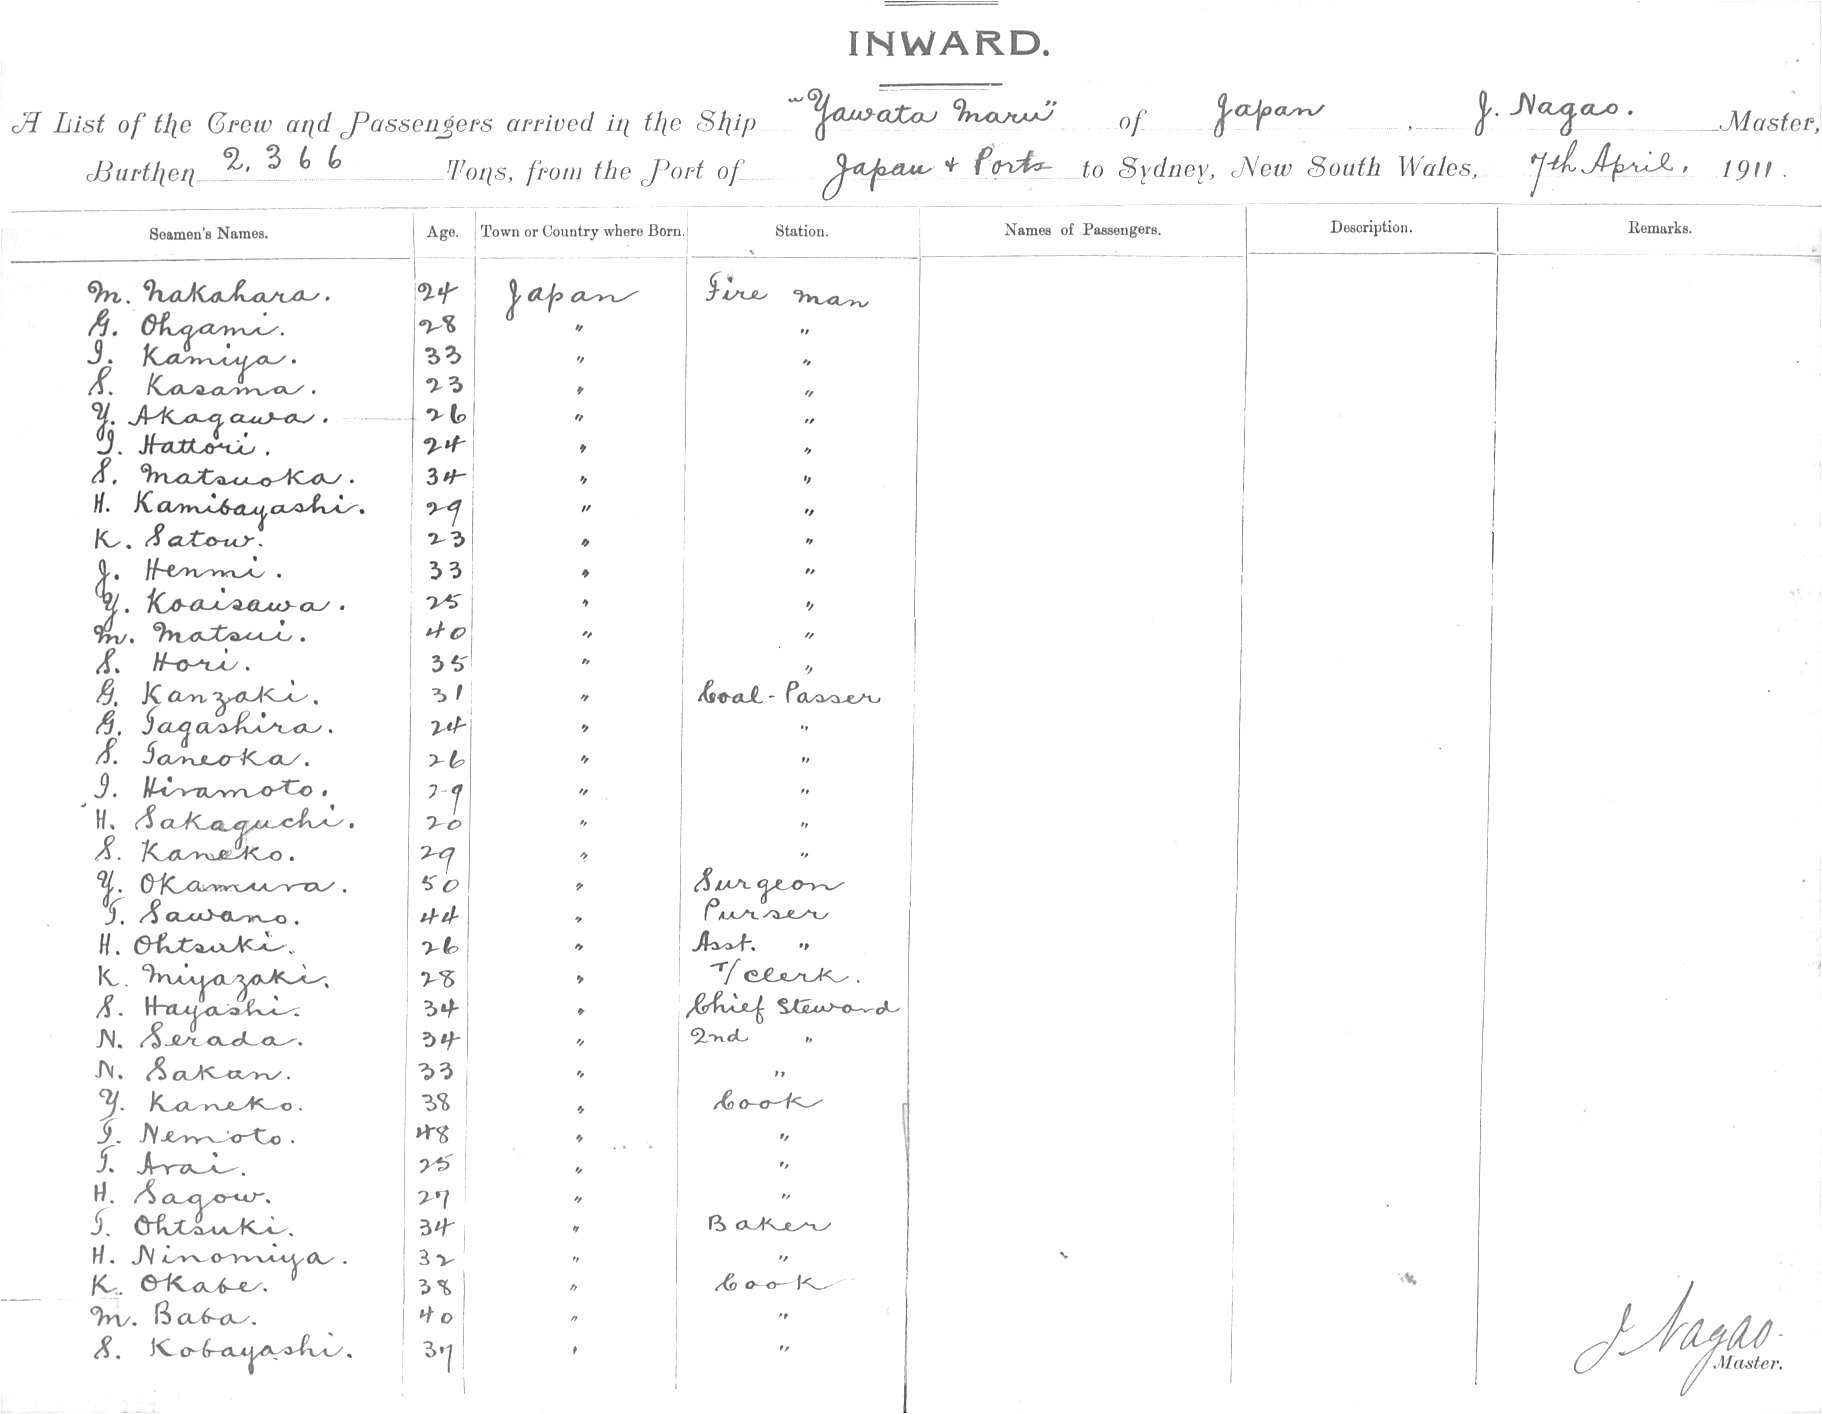 INWARD.
A List of the Crew and Passengers arrived in the Ship "Yawata Maru" of Japan, J. Nagao. Master,
Burthen 2,366 Tons, from the Port of Japan + Ports to Sydney, New South Wales, 7th April. 1911.
Seamen's Names. Age. Town or Country where Born. Station. Names of Passengers. Description. Remarks.
M. Nakahara. 24 Japan Fire man
G. Ohgami. 28 " "
I. Kamiya. 33 " "
S. Kasama. 23 " "
Y. Akagawa. 26 " "
I. Hattori. 24 " "
S. Matsuoka. 34 " "
H. Kamibayashi. 29 " "
K. Satow. 23 " "
J. Henmi. 33 " "
Y. Koaisawa. 25 " "
M. Matsui. 40 " "
S. Hori. 35 " "
G. Kanzaki. 31 " Coal-Passer
G. Tagashira. 24 " "
S. Taneoka. 26 " "
I. Hiramoto. 29 " "
H. Sakaguchi. 20 " "
S. Kaneko. 29 " "
Y. Okamura. 50 " Surgeon
T. Sawano. 44 " Purser
H. Ohtsuki. 26 " Asst. "
K. Miyazaki. 28 " T/clerk.
S. Hayashi. 34 " Chief Steward
N. Serada. 34 " 2nd "
N. Sakan. 33 " "
Y. Kaneko. 38 " Cook
T. Nemoto. 48 " "
T. Arai. 25 " "
H. Sagow. 27 " "
T. Ohtsuki. 34 " Baker
H. Ninomiya. 32 " "
K. Okabe. 38 " Cook
M. Baba. 40 " "
S. Kobayashi. 37 " "
J Nagao.
Master.